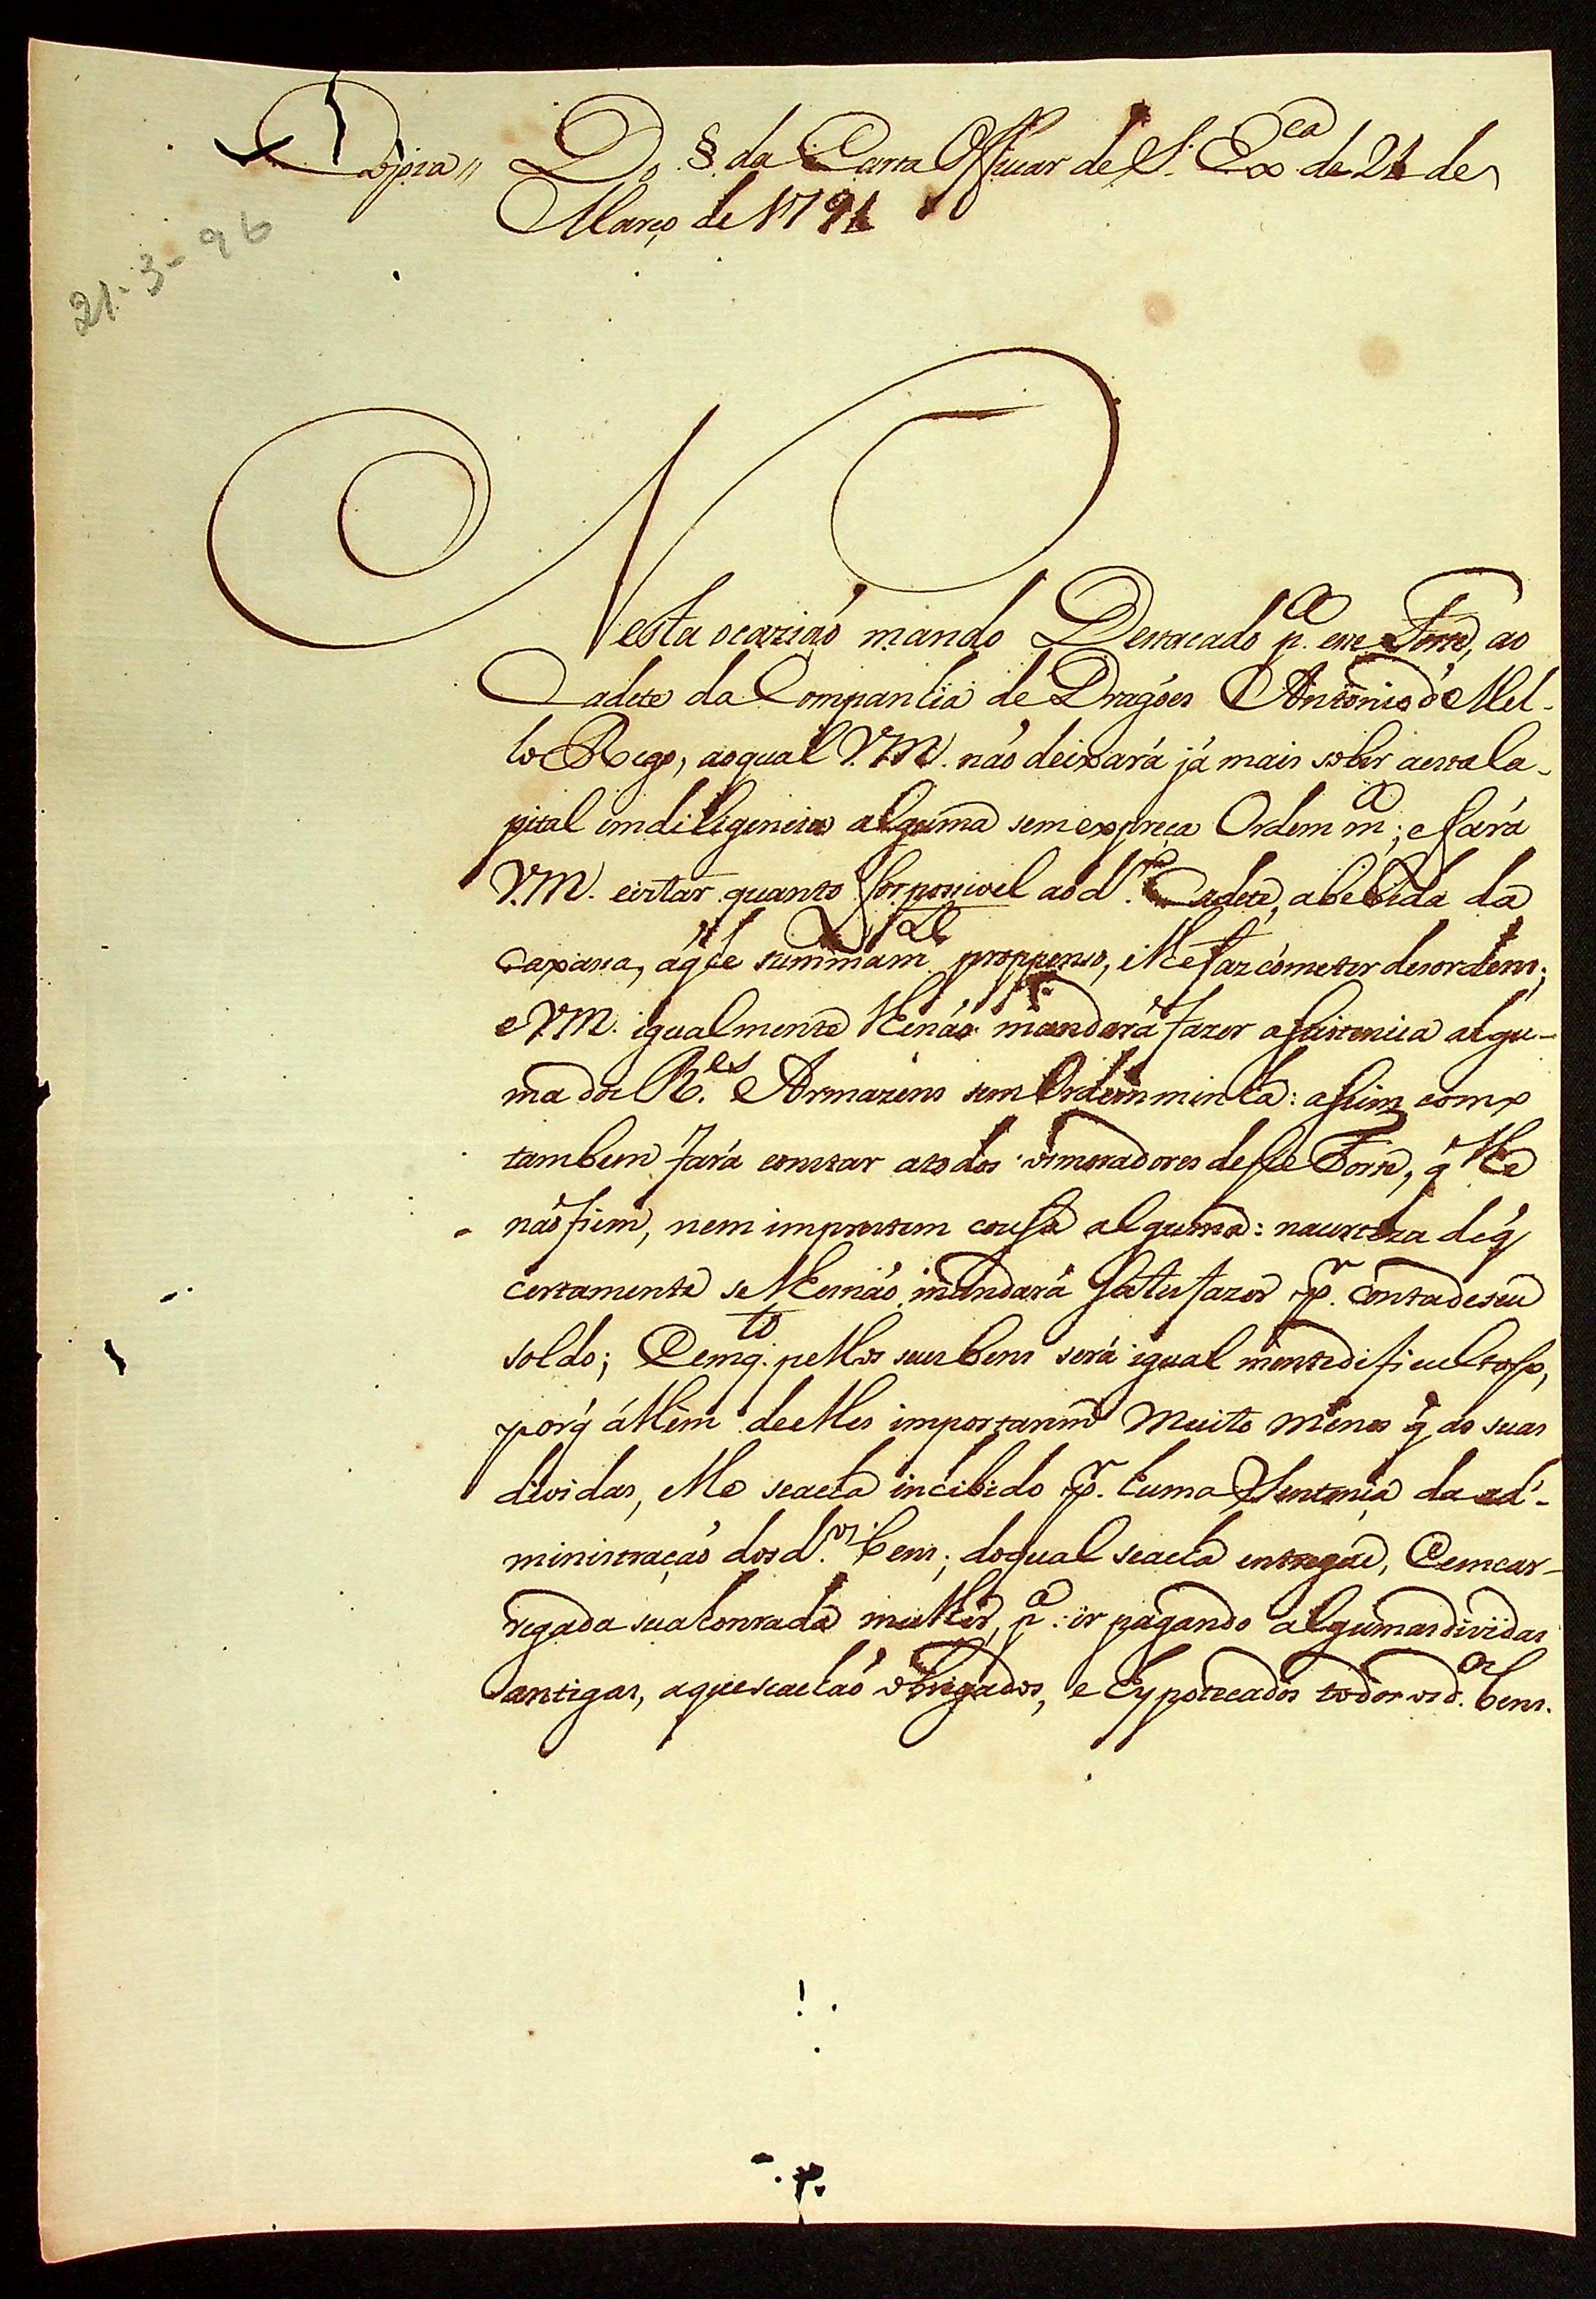 Copia// Do § da Carta Officiar de S. Exca de 21 de
Março de 1791
21-3-96
Nesta ocaziaó mando Destacado pa. esse Forte, ao
Cadete da Companhia de Dragóes Antonio d'Mel-
lo Rego, aoqual V.M. naó deixará já mais sobir aesta Ca-
pital emdiligencia alguma sem expreça Ordem ma; e fará
V.M. evitar quanto for possivel ao do. Cadete, abebida da
caxasa, áq'hé summamte. proppenso, elhefaz cometer desordens;
e V.M. igualmente lhenáo mandará fazer assistencia algu-
ma dos Res. Armazens sem Ordem minha: assim como
tambem fará constar atodos osmoradores desse Forte, q' lhe
naófiem, nem imprestem cousa alguma: nacerteza deq'
certamente selhesnáo mandará satisfazer pr. contadeseu
soldo; Eemqto. pellos seus bens será igual mentedificultoso,
porq' állêm deelles importarem muito menos q' as suas
dividas, elle seacha inhibido pr. huma Sentença da ad-
ministraçaó dosdos. bens; doqual seacha entregue, Eemcar-
regada suahonrada mulher, pa. ir pagando algumas dividas
antigas, aqueseachaó obrigados, e hypotecados todos osdos. bens.